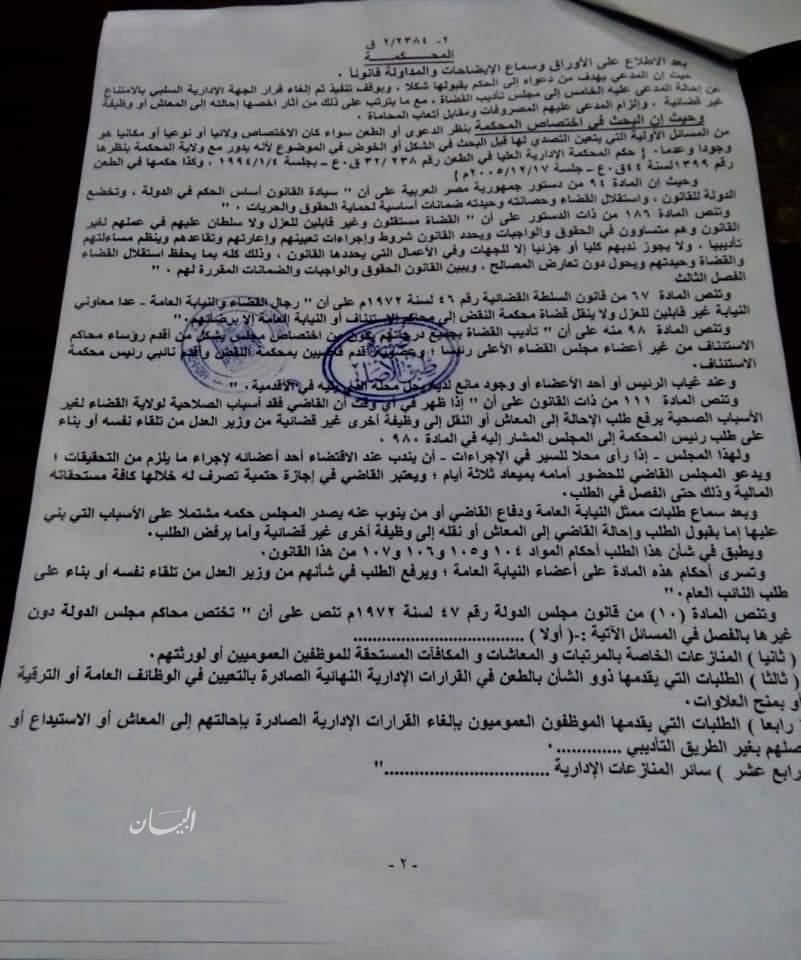 ٢- ٢/٢٣٨٤ ق
المحكمــــة
بعد الاطلاع على الأوراق وسماع الإيضاحات والمداولة قانوناً .
حيث إن المدعي يهدف من دعواه إلى الحكم بقبولها شكلا ، وبوقف تنفيذ ثم إلغاء قرار الجهة الإدارية السلبي بالامتناع
عن إحالة المدعى عليه الخامس إلى مجلس تأديب القضاة ، مع ما يترتب على ذلك من آثار اخصها إحالته إلى المعاش أو وظيفة
غير قضائية ، وإلزام المدعى عليهم المصروفات ومقابل أتعاب المحاماة .
وحيث إن البحث في اختصاص المحكمة بنظر الدعوى أو الطعن سواء كان الاختصاص ولائيا أو نوعيا أو مكانيا هو
من المسائل الأولية التي يتعين التصدي لها قبل البحث في الشكل أو الخوض في الموضوع لأنه يدور مع ولاية المحكمة بنظرها
وجودا وعدما. { حكم المحكمة الإدارية العليا في الطعن رقم ٢٣٨ /٣٢ ق.ع – بجلسة ١٩٩٤/١/٤ ، وكذا حكمها في الطعن
رقم ١٣٩٩لسنة ٤٤ق.ع – جلسة ٢٠٠٥/١٢/١٧م }
وحيث إن المادة ٩٤ من دستور جمهورية مصر العربية على أن " سيادة القانون أساس الحكم في الدولة ، وتخضع
الدولة للقانون ، واستقلال القضاء وحصانته وحيدته ضمانات أساسية لحماية الحقوق والحريات . "
وتنص المادة ١٨٦ من ذات الدستور على أن " القضاة مستقلون وغير قابلين للعزل ولا سلطان عليهم في عملهم لغير
القانون وهم متساوون في الحقوق والواجبات ويحدد القانون شروط وإجراءات تعيينهم وإعارتهم وتقاعدهم وينظم مساءلتهم
تأديبيا ، ولا يجوز ندبهم كليا أو جزئيا إلا للجهات وفي الأعمال التي يحددها القانون ، وذلك كله بما يحفظ استقلال القضاء
والقضاة وحيدتهم ويحول دون تعارض المصالح ، ويبين القانون الحقوق والواجبات والضمانات المقررة لهم . "
الفصل الثالث
وتنص المادة ٦٧ من قانون السلطة القضائية رقم ٤٦ لسنة ١٩٧٢م على أن " رجال القضاء والنيابة العامة - عدا معاوني
النيابة غير قابلين للعزل ولا ينقل قضاة محكمة النقض إلى محاكم الاستئناف أو النيابة العامة إلا برضائهم."
وتنص المادة ٩٨ منه على أن " تأديب القضاة بجميع درجاتهم يكون من اختصاص مجلس يشكل من أقدم رؤساء محاكم
الاستئناف من غير أعضاء مجلس القضاء الأعلى رئيسا ؛ وعضوية أقدم قاضيين بمحكمة النقض وأقدم نائبي رئيس محكمة
الاستئناف.
وعند غياب الرئيس أو أحد الأعضاء أو وجود مانع لديه يحل محله الذي يليه في الأقدمية . "
وتنص المادة ١١١ من ذات القانون على أن " إذا ظهر في أي وقت أن القاضي فقد أسباب الصلاحية لولاية القضاء لغير
الأسباب الصحية يرفع طلب الإحالة إلى المعاش أو النقل إلى وظيفة أخرى غير قضائية من وزير العدل من تلقاء نفسه أو بناء
على طلب رئيس المحكمة إلى المجلس المشار إليه في المادة ٩٨.
ولهذا المجلس - إذا رأى محلا للسير في الإجراءات - أن يندب عند الاقتضاء أحد أعضائه لإجراء ما يلزم من التحقيقات ؛
ويدعو المجلس القاضي للحضور أمامه بميعاد ثلاثة أيام ؛ ويعتبر القاضي في إجازة حتمية تصرف له خلالها كافة مستحقاته
المالية وذلك حتى الفصل في الطلب.
وبعد سماع طلبات ممثل النيابة العامة ودفاع القاضي أو من ينوب عنه يصدر المجلس حكمه مشتملا على الأسباب التي بني
عليها إما بقبول الطلب وإحالة القاضي إلى المعاش أو نقله إلى وظيفة أخرى غير قضائية وأما برفض الطلب.
ويطبق في شأن هذا الطلب أحكام المواد ١٠٤ و١٠٥ و١٠٦ و١٠٧ من هذا القانون.
وتسرى أحكام هذه المادة على أعضاء النيابة العامة ؛ ويرفع الطلب في شأنهم من وزير العدل من تلقاء نفسه أو بناء على
طلب النائب العام."
وتنص المادة (١٠) من قانون مجلس الدولة رقم ٤٧ لسنة ١٩٧٢م تنص على أن " تختص محاكم مجلس الدولة دون
غيرها بالفصل في المسائل الآتية :-( أولا ) ..................................
( ثانيا ) المنازعات الخاصة بالمرتبات و المعاشات و المكافآت المستحقة للموظفين العموميين أو لورثتهم.
( ثالثا ) الطلبات التي يقدمها ذوو الشأن بالطعن في القرارات الإدارية النهائية الصادرة بالتعيين في الوظائف العامة أو الترقية
أو بمنح العلاوات.
( رابعا ) الطلبات التي يقدمها الموظفون العموميون بإلغاء القرارات الإدارية الصادرة بإحالتهم إلى المعاش أو الاستيداع أو
صلهم بغير الطريق التأديبي ............. .
رابع عشر ) سائر المنازعات الإدارية ................................."
البيان
- ٢ -